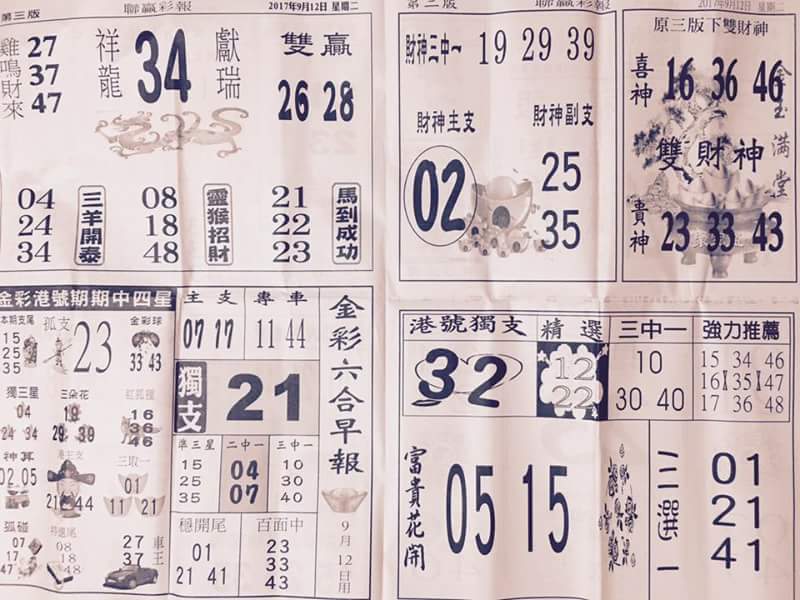 第三版 聯贏彩報 2017年9月12日 星期二
雞鳴財來 27 37 47
祥龍 34 獻瑞
雙贏
26 28
04 24 34
三羊開泰
08 18 48
靈猴招財
21 22 23
馬到成功
第二版 聯贏彩報 2017年9月12日 星期二
財神三中一 19 29 39
財神主支
02
財神副支
25
35
原三版下雙財神
喜神 16 36 46
金玉滿堂
雙財神
貴神 23 33 43
金彩港號期期中四星
本期支尾
15
25
35
孤支 23
金彩球
33 43
獨三星
04
24 34
三朵花
19
29 39
紅狐狸
16
36
46
神算
02 05
港主支
21 44
三取一
01
11 21
孤碰
07
17
47
特選尾
08
18
48
27
37
車王
主支
07 17
專車
11 44
獨支 21
準三星
15
25
35
二中一
04
07
三中一
10
30
40
穩開尾
01
21 41
百面中
23
33
43
金彩六合早報
9月12日用
港號獨支
32
精選
12
22
三中一
10
30 40
強力推薦
15 34 46
16 35 47
17 36 48
富貴花開
05 15
三選一
01
21
41